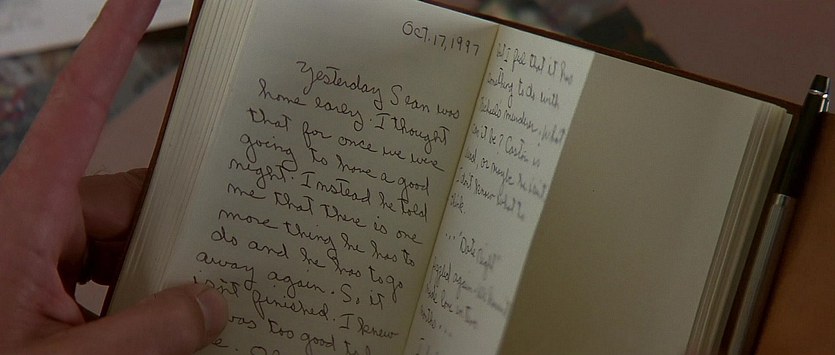 Oct. 17, 1997
Yesterday Sean was
home early. I thought
that for once we were
going to have a good
night. Instead he told
me that there is one
more thing he has to
do and he has to go
away again. So, it
isn't finished. I knew
was too good to
but I feel that it has
something to do with
murder. What
can it be? Castor is
dead, or maybe he isn't
don't know what to
think.
... "Date Night"
again
love in two